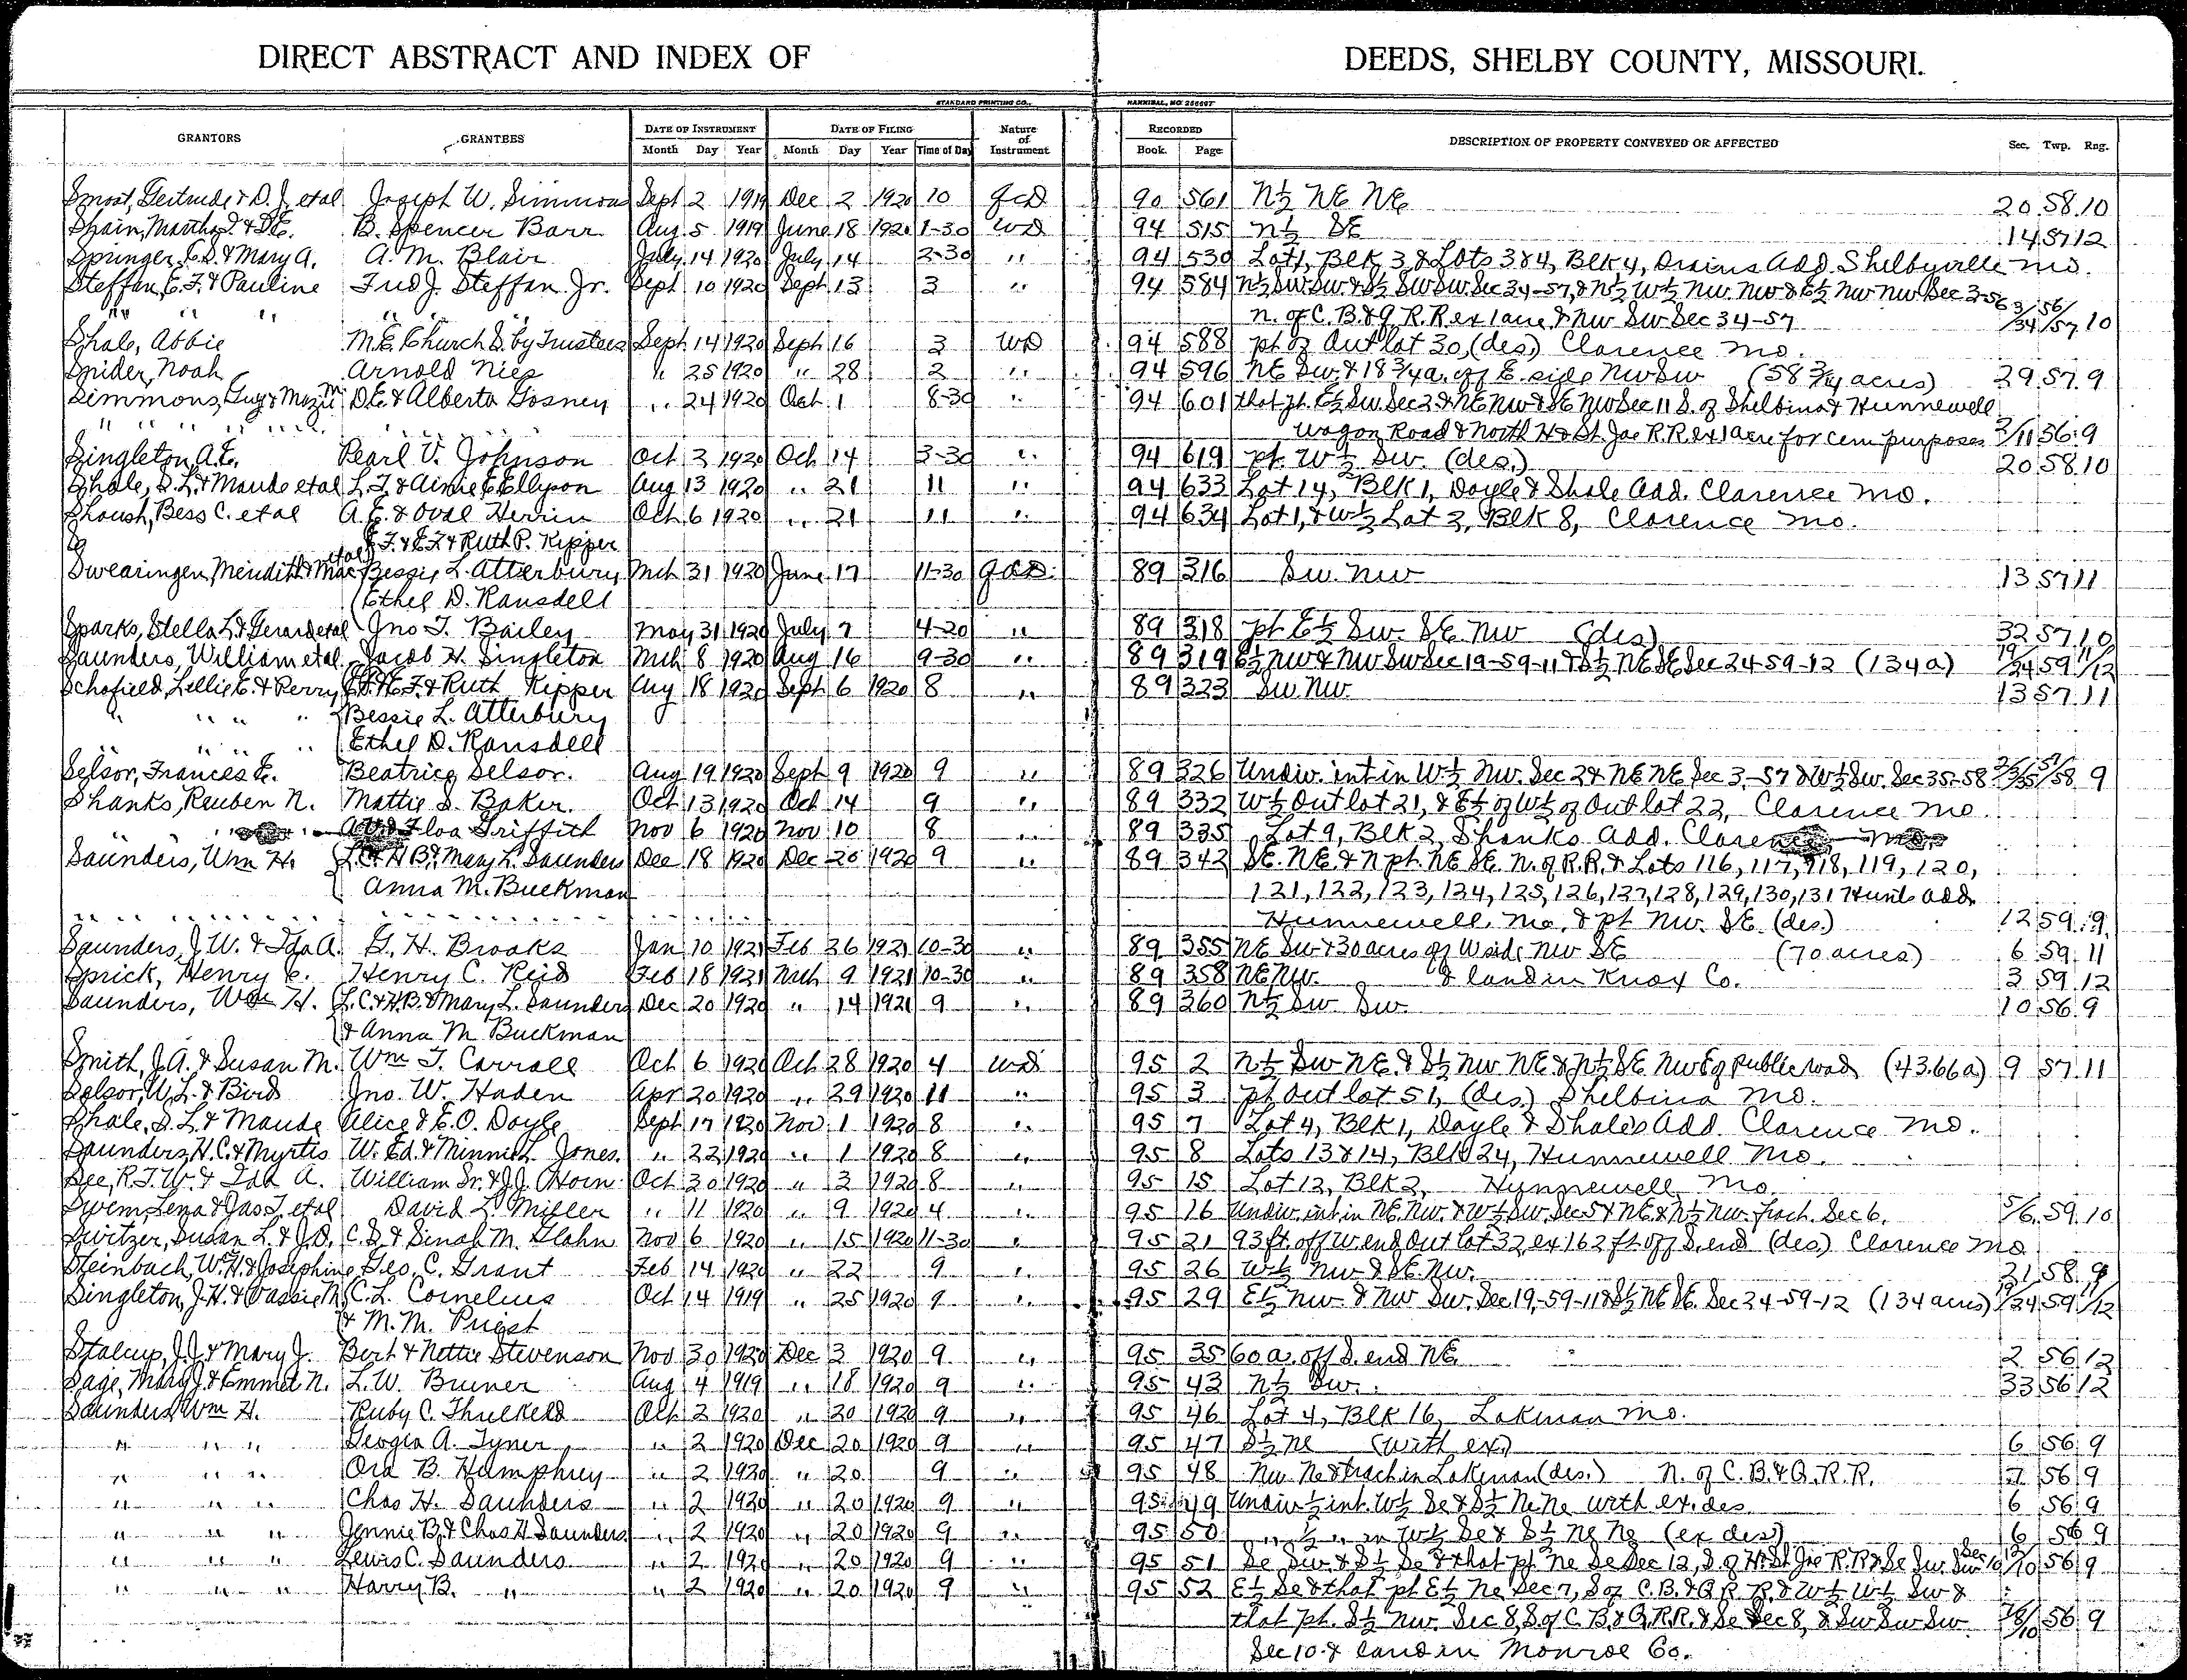 DIRECT ABSTRACT AND INDEX OF DEEDS, SHELBY COUNTY, MISSOURI.
STANDARD PRINTING CO., HANNIBAL, MO
GRANTORS GRANTEES DATE OF INSTRUMENT DATE OF FILING Nature of Instrument RECORDED DESCRIPTION OF PROPERTY CONVEYED OR AFFECTED Sec. Twp. Rng.
Month Day Year Month Day Year Time of Day Book. Page
Smoot, Gertrude & D. J. etal Joseph W. Simmons Sept 2 1919 Dec 2 1920 10 QCD 90 561 N½ NE NE 20 58 10
Shain, Martha & B. Spencer Barr Aug 5 1919 June 18 1920 1-30 WD 94 515 N½ SE 14 57 12
Springer, E. D. & Mary A. A. M. Blair July 14 1920 July 14 2-30 " 94 530 Lot 1, Blk 3, & Lots 3 & 4, Blk 4, Add. Shelbyville Mo.
Steffan, E. F. & Pauline Fred J. Steffan Jr. Sept 10 1920 Sept 13 3 " 94 584 N½ SW SW & S½ SW SW Sec 34-57, & N½ W½ NW NW & E½ NW NW Sec 3-56 3/34 56/57 10
" " " " n. of C. B. & Q R. R ex 1 acre & NW SW Sec 34-57
Shale, Abbie M. E. Church S. by Trustees Sept 14 1920 Sept 16 3 WD 94 588 pt of Out lot 30, (des) Clarence Mo.
Snider, Noah Arnold Nies " 25 1920 " 28 2 " 94 596 NE SW & 18¾ a. off E side NW SW (58¾ acres) 29 57 9
Simmons, Guy & M. D. E. & Alberta Gosney " 24 1920 Oct 1 8-30 " 94 601 that pt. E½ SW Sec 2 & NE NW & SE NW Sec 11 S. of Shelbina & Hunnewell
" " " " " " Wagon Road & North H & St. Joe R. R. ex 1 acre for cem purposes 2/11 56 9
Singleton, A. E. Pearl V. Johnson Oct 2 1920 Oct 14 3-30 " 94 619 pt. W½ SW. (des.) 20 58 10
Shale, S. L. & Maude etal L. F. & Aimie E Ellyson Aug 13 1920 " 21 11 " 94 633 Lot 14, Blk 1, Doyle & Shale Add. Clarence Mo.
Shoush, Bess C. etal A. E. & Oval Herrin Oct 6 1920 " 21 11 " 94 634 Lot 1, & W½ Lot 2, Blk 8, Clarence Mo.
E. F. & Ruth P. Kipper
Swearingen, Meridith & Mae etal Bessie L. Atterbury Mch 31 1920 June 17 11-30 QCD 89 316 SW NW 13 57 11
Ethel D. Ransdell
Sparks, Stella L. & Gerard etal Jno T. Bailey May 31 1920 July 7 4-20 " 89 318 pt E½ SW SE NW (des) 32 57 10
Saunders, William etal Jacob H. Singleton Mch 8 1920 Aug 16 9-30 " 89 319 E½ NW & NW SW Sec 19-59-11 & S½ NE SE Sec 24-59-12 (134 a) 19/24 59 11/12
Schofield, Lellie E. & Perry E. F. & Ruth Kipper Aug 18 1920 Sept 6 1920 8 " 89 323 SW NW 13 57 11
" " " " Bessie L. Atterbury
" " " " Ethel D. Ransdell
Selsor, Frances E. Beatrice Selsor. Aug 19 1920 Sept 9 1920 9 " 89 326 Undiv. int in W½ NW Sec 2 & NE NE Sec 3-57 & W½ SW Sec 35-58 2/3/35 57/58 9
Shanks, Reuben N. Mattie S. Baker. Oct 13 1920 Oct 14 9 " 89 332 W½ Out lot 21, & E½ of W½ of Out lot 22, Clarence Mo
" Floa Griffith Nov 6 1920 Nov 10 8 " 89 335 Lot 9, Blk 2, Shanks Add. Clarence Mo.
Saunders, Wm H. L. C. & H. B. & Mary L. Saunders Dec 18 1920 Dec 20 1920 9 " 89 342 SE NE & N pt. NE SE N. of R. R. & Lots 116, 117, 118, 119, 120,
Anna M. Buckman 121, 122, 123, 124, 125, 126, 127, 128, 129, 130, 131 Hunts add.
" " " " " " Hunnewell, Mo. & pt NW SE (des.) 12 59 9
Saunders, J. W. & Ida A. G. H. Brooks Jan 10 1921 Feb 26 1921 10-30 " 89 355 NE SW & 30 acres off W side NW SE (70 acres) 6 59 11
Sprick, Henry C. Henry C. Reid Feb 18 1921 Mch 9 1921 10-30 " 89 358 NE NW. & land in Knox Co. 3 59 12
Saunders, Wm H. L. C. & H. B. & Mary L. Saunders Dec 20 1920 " 14 1921 9 " 89 360 N½ SW SW. 10 56 9
& Anna M Buckman
Smith, J. A. & Susan M. Wm T. Carroll Oct 6 1920 Oct 28 1920 4 WD 95 2 N½ SW NE & S½ NW NE & N½ SE NW E of public road (43.66 a) 9 57 11
Selsor, W. L. & Bird Jno. W. Haden Apr 20 1920 " 29 1920 11 " 95 3 pt Out lot 51, (des.) Shelbina Mo.
Shale, S. L & Maude Alice & E. O. Doyle Sept 17 1920 Nov 1 1920 8 " 95 7 Lot 4, Blk 1, Doyle & Shale's Add. Clarence Mo.
Saunders, H. C. & Myrtis W. Ed. & Minnie L. Jones. " 22 1920 " 1 1920 8 " 95 8 Lots 13 & 14, Blk 24, Hunnewell Mo.
See, R. T. W. & Ida A. William Sr. & J. J. Horn Oct 30 1920 " 3 1920 8 " 95 15 Lot 12, Blk 2, Hunnewell Mo
Swem, Lena & Jas T. etal David L. Miller " 11 1920 " 9 1920 4 " 95 16 Undiv. int in NE NW & W½ SW Sec 5 & NE & N½ NW frac. Sec 6. 5/6 59 10
Switzer, Susan L. & J. D. C. S. & Sinah M. Glahn Nov 6 1920 " 15 1920 11-30 " 95 21 93 ft. off W. end Out lot 32, ex 162 ft off S. end (des.) Clarence Mo
Steinbach, W. H. & Josephine Geo. C. Grant Feb 14 1920 " 22 9 " 95 26 W½ NW & SE NW. 21 58 9
Singleton, J. H. & Cassie M. C. L. Cornelius Oct 14 1919 " 25 1920 9 " 95 29 E½ NW & NW SW Sec 19-59-11 & S½ NE SE Sec 24-59-12 (134 acres) 19/24 59 11/12
& M. M. Priest
Stalcup, J. J. & Mary J. Bert & Nettie Stevenson Nov 30 1920 Dec 3 1920 9 " 95 35 60 a. off S. end NE 2 56 12
Sage, Mary J. & Emmet N. L. W. Bruner Aug 4 1919 " 18 1920 9 " 95 43 N½ SW. 33 56 12
Saunders, Wm H. Ruby C. Threlkeld Oct 2 1920 " 20 1920 9 " 95 46 Lot 4, Blk 16, Lakenan Mo.
" " " Geogia A. Tyner " 2 1920 Dec 20 1920 9 " 95 47 S½ Ne (with ex) 6 56 9
" " " Ora B. Humphrey " 2 1920 " 20 9 " 95 48 NW Ne & tract in Lakenan (des.) N. of C. B. & Q. R. R. 7 56 9
" " " Chas H. Saunders " 2 1920 " 20 1920 9 " 95 49 Undiv ½ int. W½ Se & S½ Ne Ne with ex. des. 6 56 9
" " " Jennie B. & Chas H Saunders " 2 1920 " 20 1920 9 " 95 50 " ½ " in W½ Se & S½ Ne Ne (ex des) 6 56 9
" " " Lewis C. Saunders " 2 1920 " 20 1920 9 " 95 51 Se SW & S½ Se & that pt Ne Se Sec 12, S. of H. & St. Joe R. R & Se SW SW Sec 10 12/10 56 9
" " " Harry B. " " 2 1920 " 20 1920 9 " 95 52 E½ Se & that pt E½ Ne Sec 7, S of C. B. & Q R. R. & W½ W½ SW &
that pt. S½ NW Sec 8, S of C B & Q. R. R. & Se Sec 8, & SW SW SW 7/8/10 56 9
Sec 10 & land in Monroe Co.